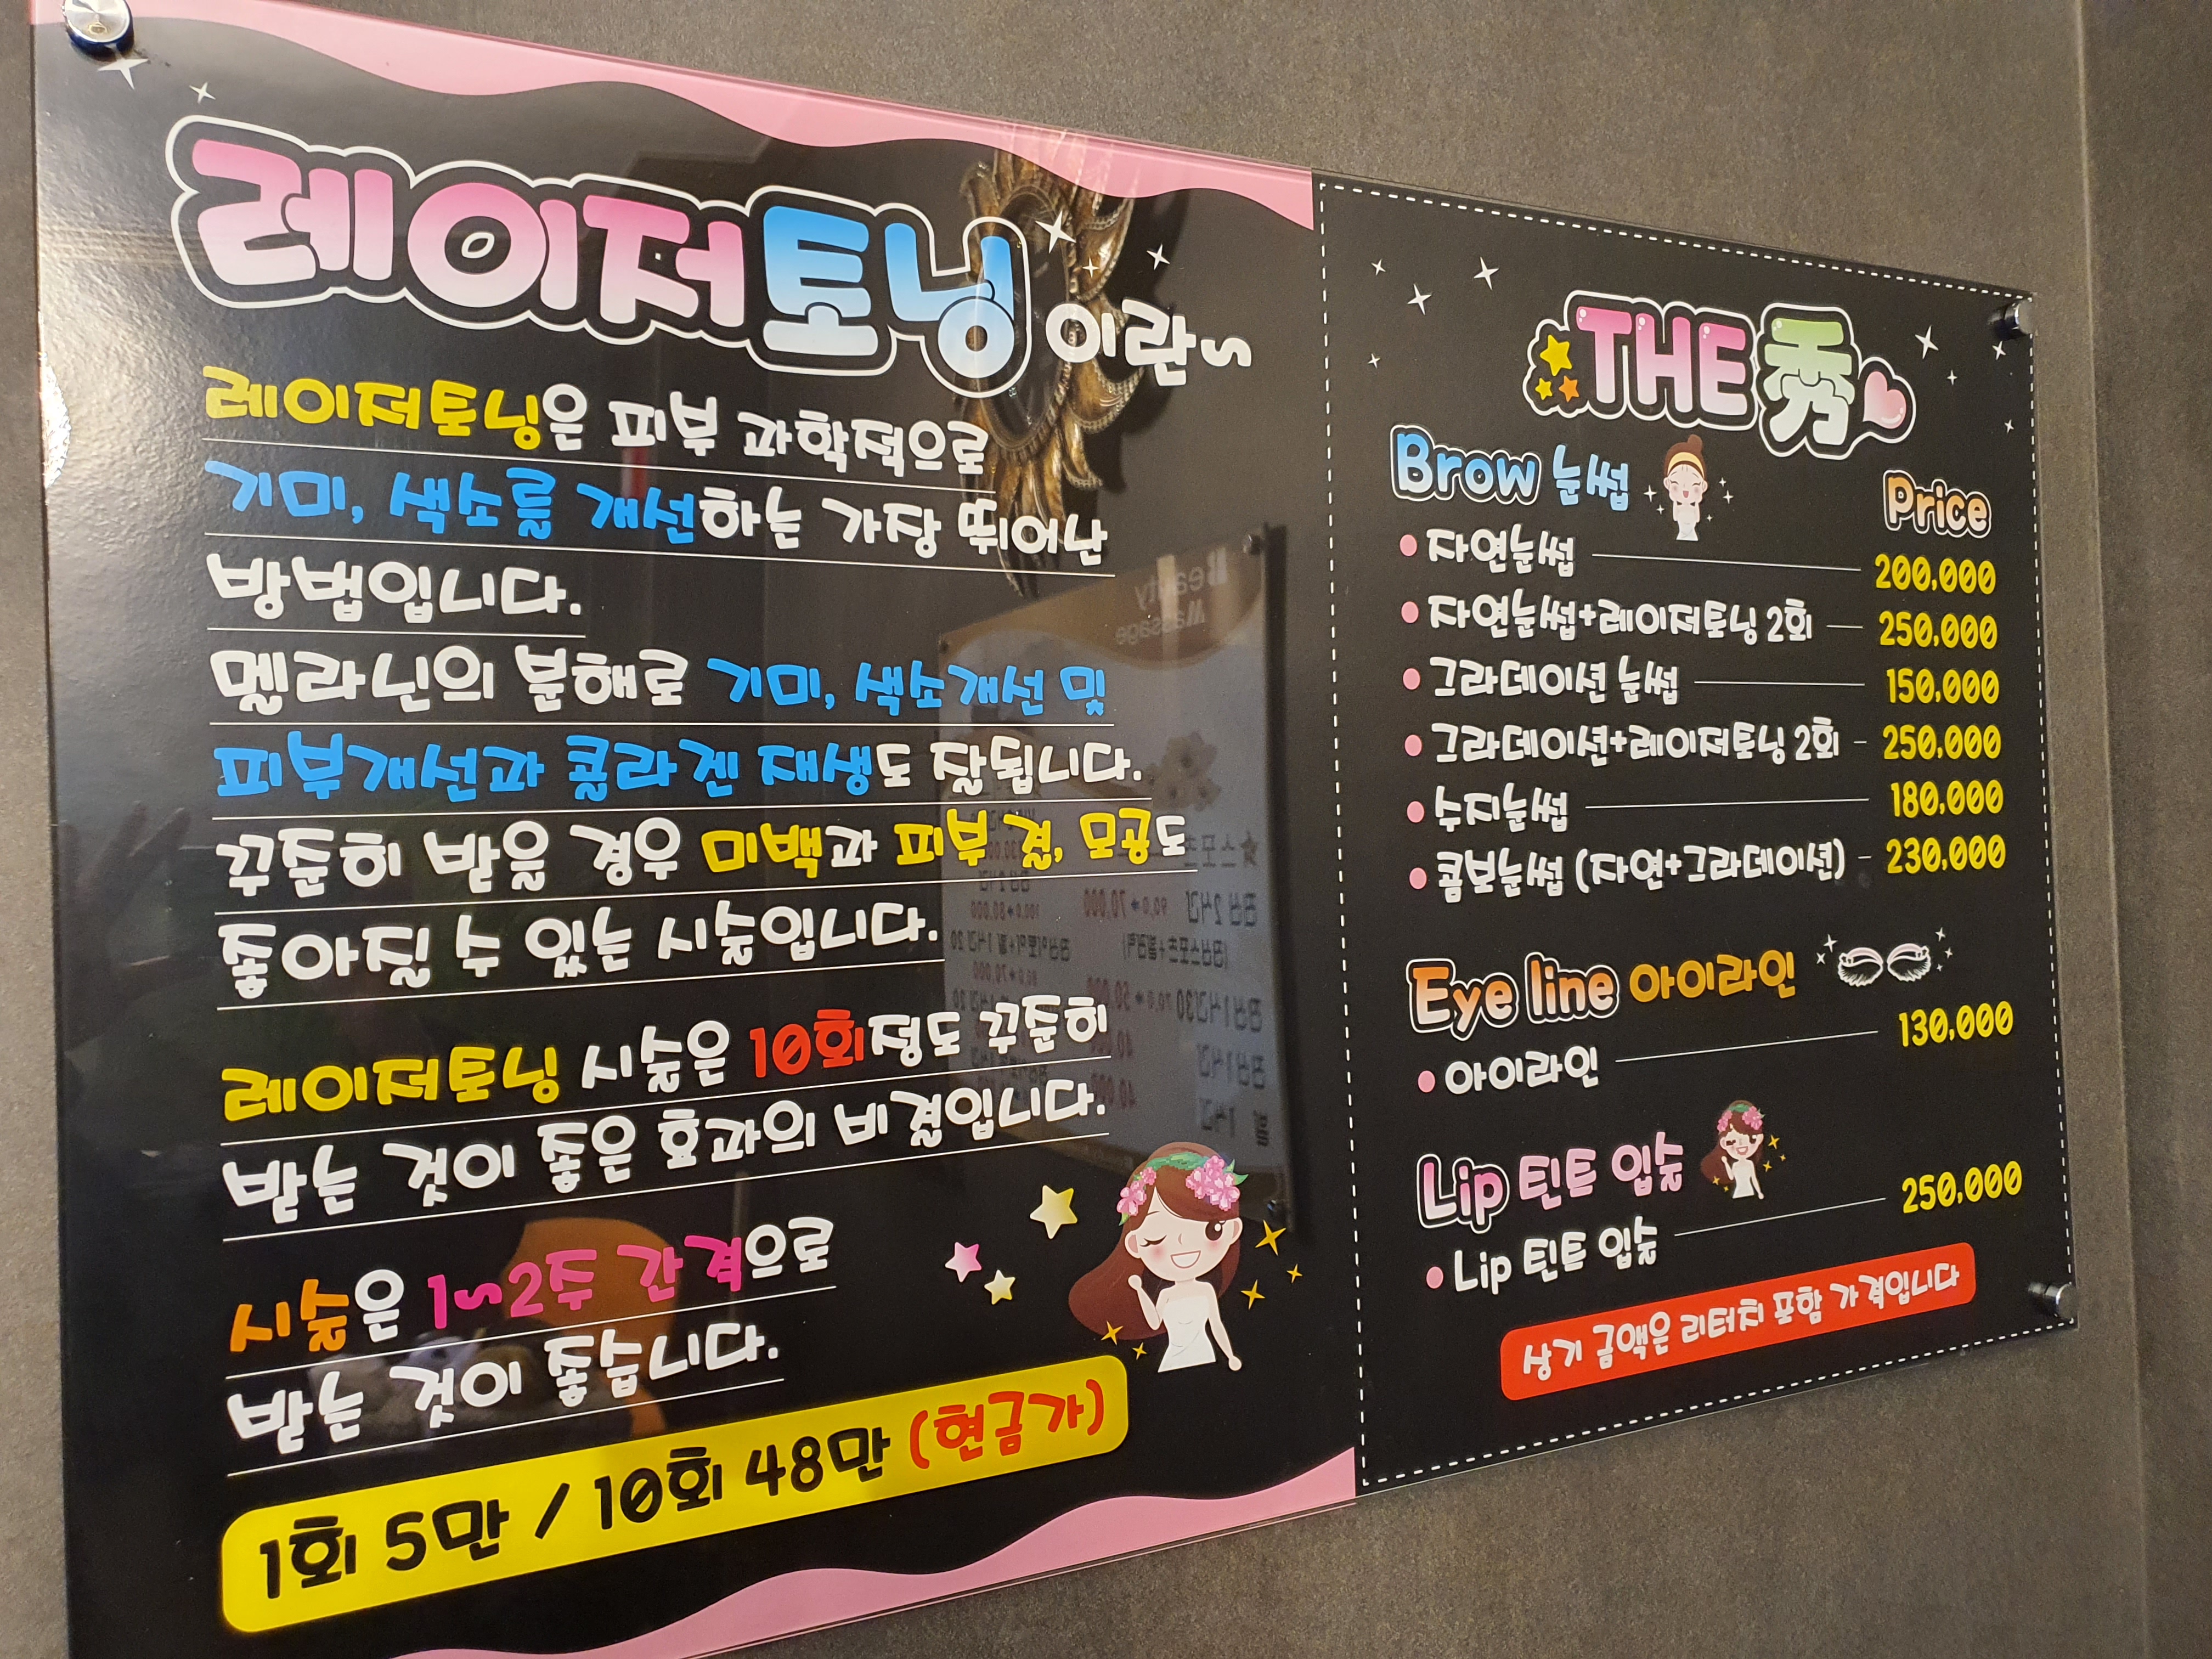 레이저토닝이란~
레이저토닝은 피부 과학적으로
기미, 색소를 개선하는 가장 뛰어난
방법입니다.
멜라닌의 분해로 기미, 색소개선 및
피부개선과 콜라겐 재생도 잘됩니다.
꾸준히 받을 경우 미백과 피부 결, 모공도
좋아질 수 있는 시술입니다.
레이저토닝 시술은 10회정도 꾸준히
받는 것이 좋은 효과의 비결입니다.
시술은 1~2주 간격으로
받는 것이 좋습니다.
1회 5만 / 10회 48만 (현금가)
THE 秀
Brow 눈썹 Price
자연눈썹 200,000
자연눈썹+레이저토닝 2회 250,000
그라데이션 눈썹 150,000
그라데이션+레이저토닝 2회 250,000
수지눈썹 180,000
콤보눈썹 (자연+그라데이션) 230,000
Eye line 아이라인
아이라인 130,000
Lip 틴트 입술
Lip 틴트 입술 250,000
상기 금액은 리터치 포함 가격입니다
Beauty
Massage